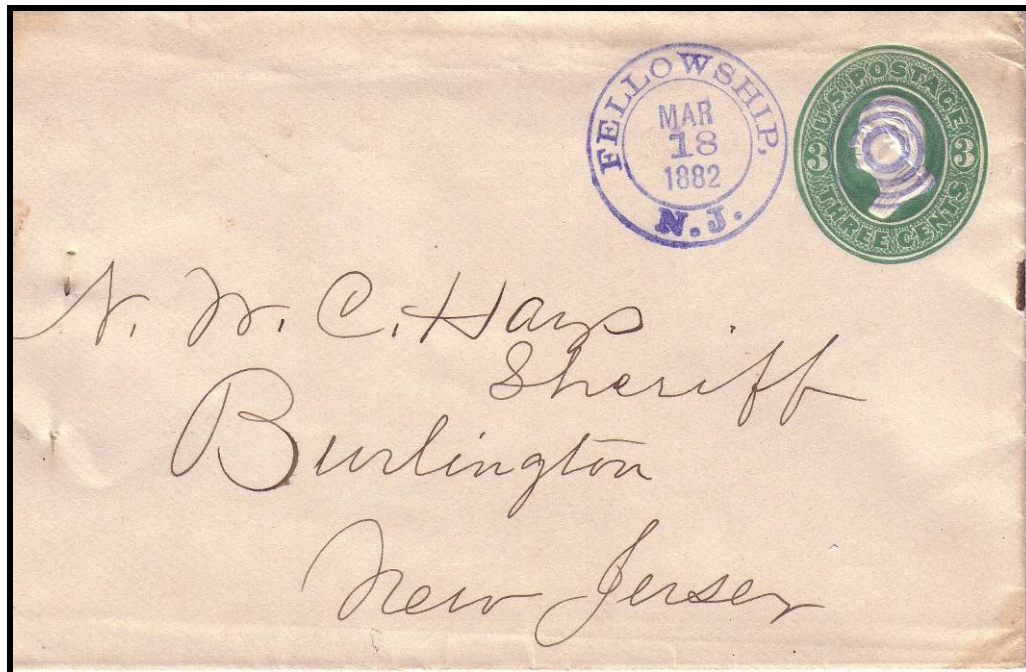 FELLOWSHIP,
MAR
18
1882
N.J.
U.S. POSTAGE
3 3
THREE CENTS
N. W. C. Hays
Sheriff
Burlington
New Jersey